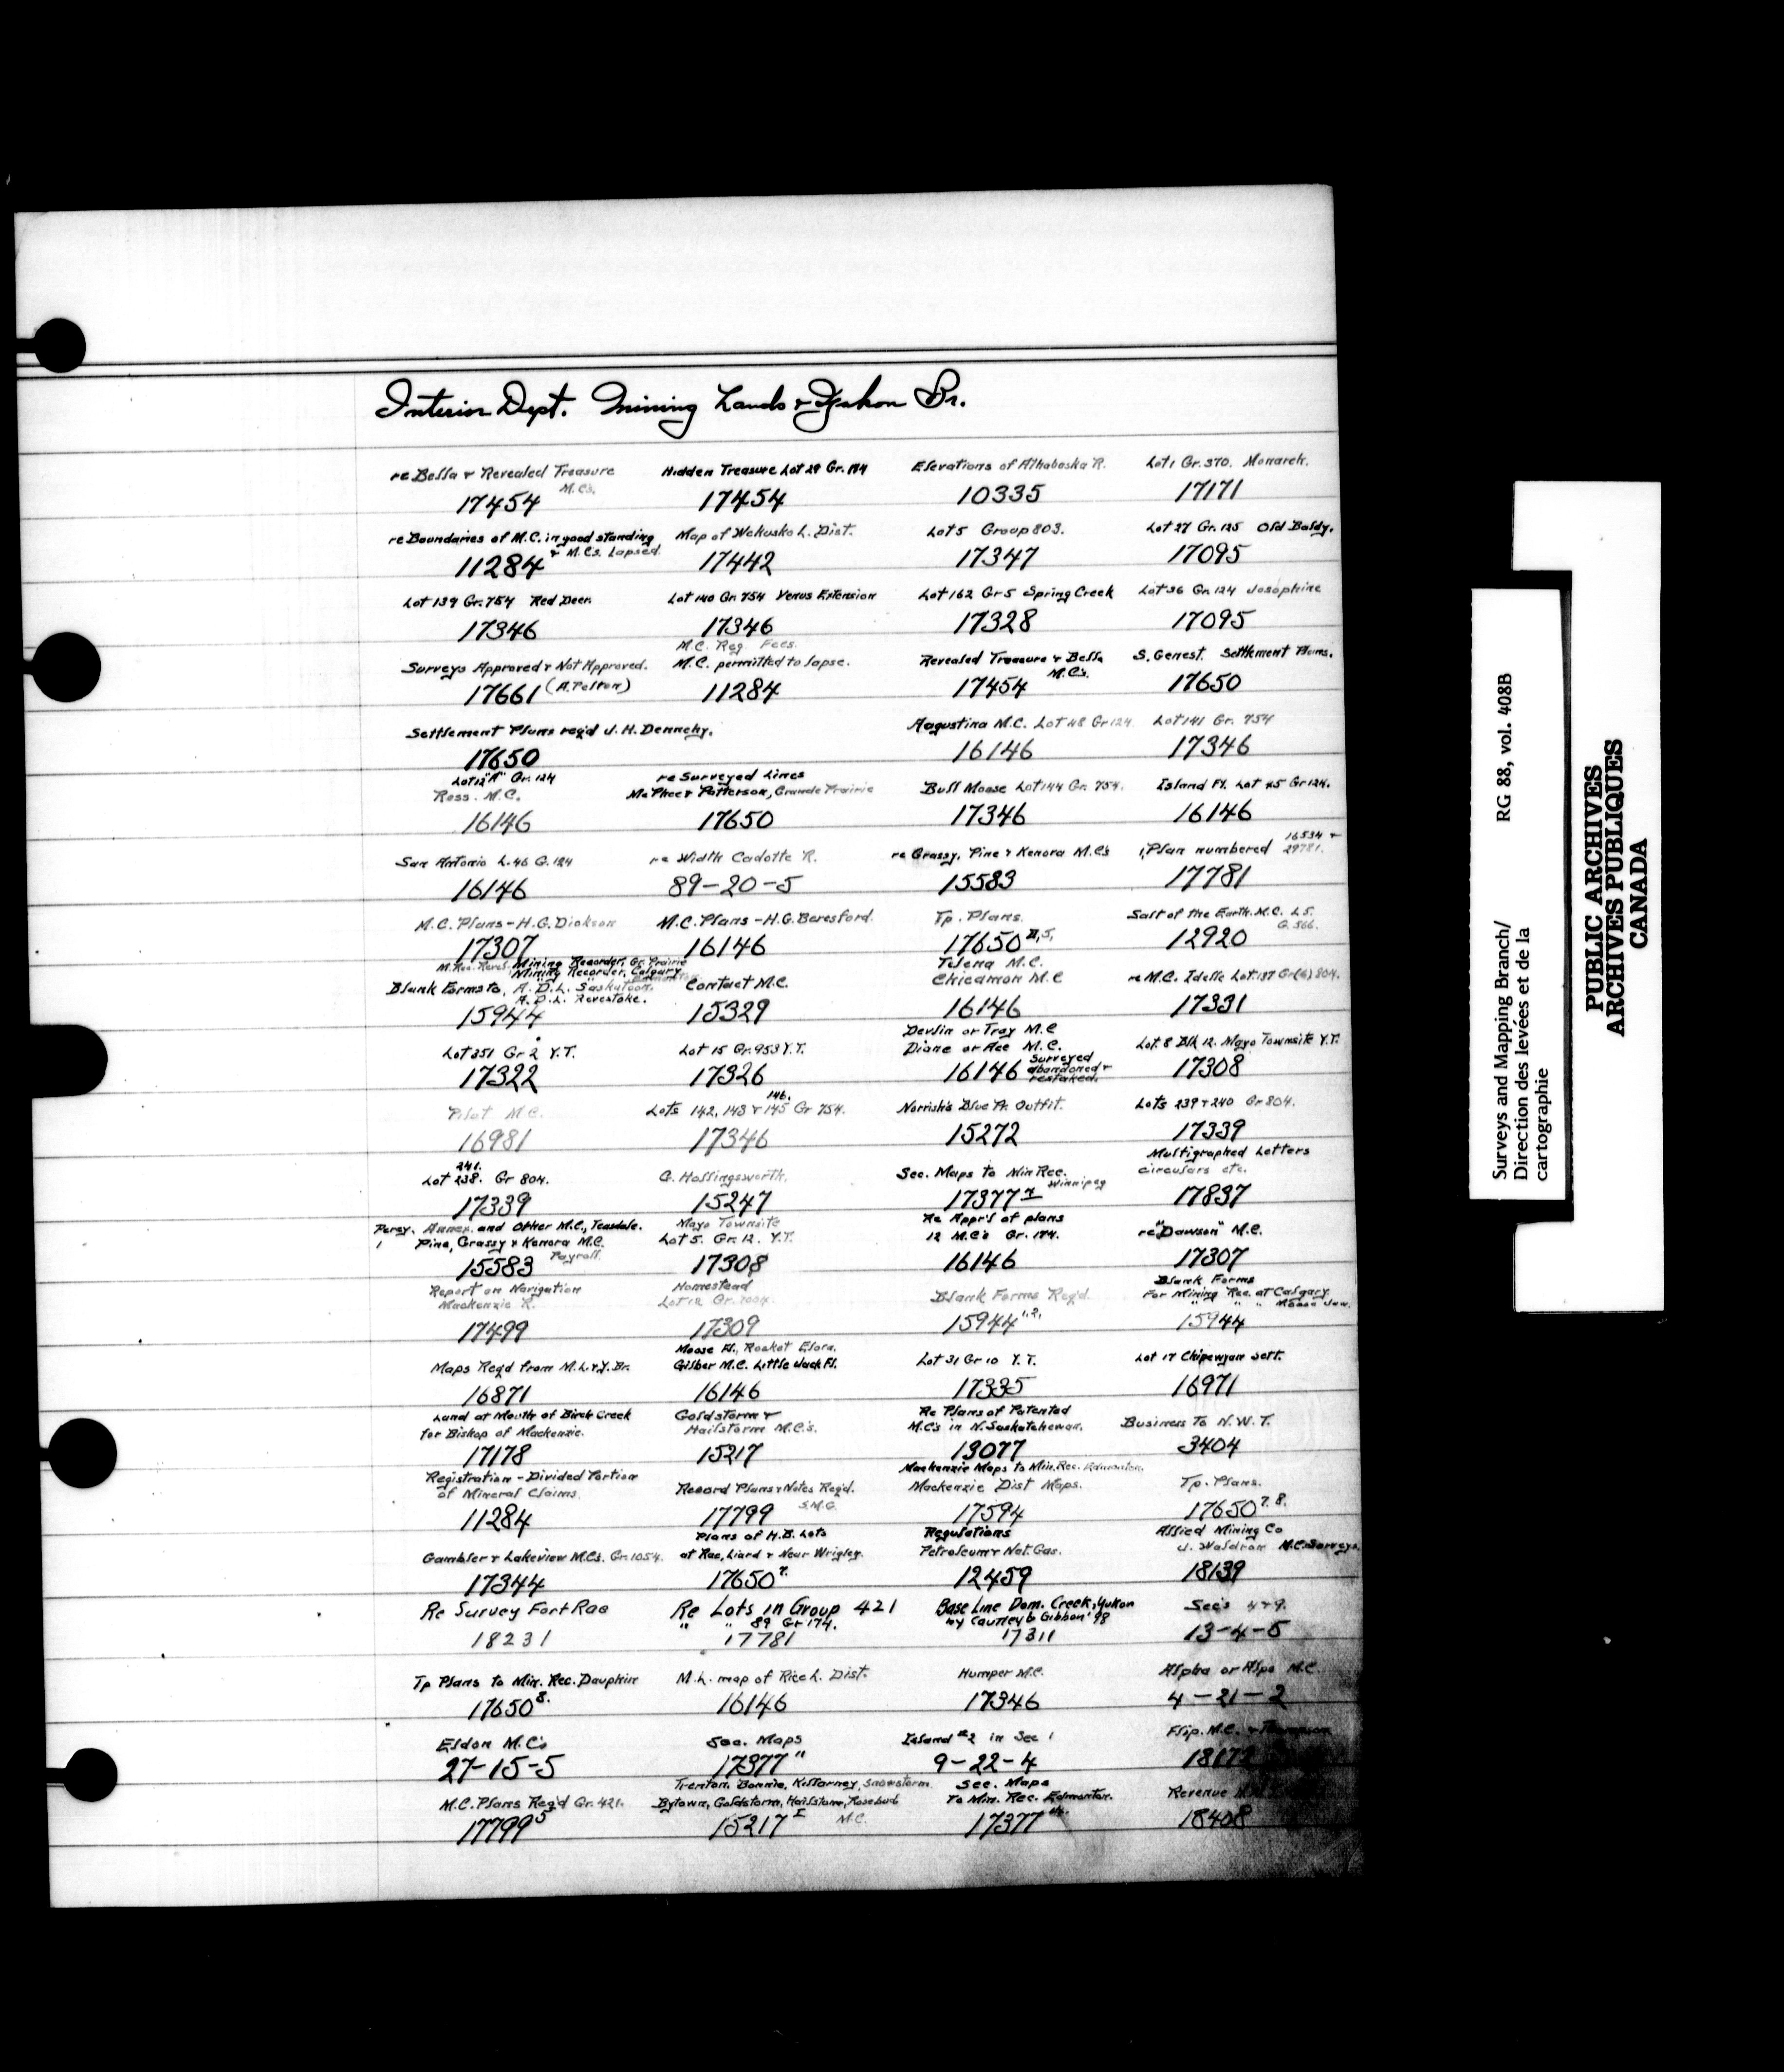 Interior Dept. Mining Lands & Yukon Br.
re Bella & Revealed Treasure M.C's.
17454
Hidden Treasure Lot 29 Gr. 174
17454
Elevations of Athabaska R.
10335
Lot 1 Gr. 370. Monarch.
17171
re Boundaries of M.C. in good standing
& M.C's. Lapsed.
11284
Map of Wekusko L. Dist.
17442
Lot 5 Group 803.
17347
Lot 27 Gr. 125 Old Baldy.
17095
Lot 139 Gr. 754 Red Deer.
17346
Lot 140 Gr. 754 Venus Extension
17346
Lot 162 Gr 5 Spring Creek
17328
Lot 36 Gr. 124 Josephine
17095
Surveys Approved & Not Approved.
17661 (A. Pelton)
M.C. Reg Fees.
M.C. permitted to lapse.
11284
Revealed Treasure & Bella
M.C's.
17454
S. Genest. Settlement Plans.
17650
Settlement Plans req'd J. H. Dennehy.
17650
Augustina M.C. Lot 48 Gr 124
16146
Lot 141 Gr. 754
17346
Lot 12 "A" Gr. 124
Ross. M.C.
16146
re Surveyed Lines
McPhee & Patterson, Grande Prairie
17650
Bull Moose Lot 144 Gr. 754.
17346
Island Fl. Lot 45 Gr 124.
16146
San Antonio L. 46 G. 124
16146
re Width Cadotte R.
89-20-5
re Grassy, Pine & Kenora M.C's
15583
Plan numbered 16534 &
29781.
17781
M.C. Plans - H.G. Dickson
17307
M.C. Plans - H.G. Beresford.
16146
Tp. Plans.
17650 II, 5,
Salt of the Earth. M.C. L 5.
G. 566.
12920
Mining Recorder, Gr. Prairie
Mining Recorder, Calgary
Blank Forms to, A. D. L. Saskatoon.
A. D. L. Revelstoke.
15944
Contact M.C.
15329
Telena M.C.
Chicamon M.C
16146
re M.C. Idelle Lot 137 Gr (6) 804.
17331
Lot 351 Gr 2 Y.T.
17322
Lot 15 Gr. 953 Y.T.
17326
Devlin or Troy M.C
Diane or Ace M.C.
16146 Surveyed
abandoned &
restaked.
Lot 8 Blk 12. Mayo Townsite Y.T.
17308
Pilot M.C.
16981
146.
Lots 142, 143 & 145 Gr 754.
17346
Norrish's Blue Pr. Outfit.
15272
Lots 239 & 240 Gr 804.
17339
241.
Lot 238. Gr 804.
17339
G. Hollingsworth.
15247
Sec. Maps to Min Rec.
Winnipeg
17377
Multigraphed Letters
circulars etc.
17837
Percy, Annex. and Other M.C., Teasdale.
Pine, Grassy & Kenora M.C.
Payroll.
15583
Mayo Townsite
Lot 5. Gr. 12. Y.T.
17308
Re Appr'l of plans
12 M.C's Gr. 174.
16146
re "Dawson" M.C.
17307
Report on Navigation
Mackenzie R.
17499
Homestead
Lot 12 Gr. 1004.
17309
Blank Forms Req'd.
15944 1,2,
Blank Forms
For Mining Rec. at Calgary.
" " " Moose Jaw.
15944
Maps Reqd from M.L. & Y. Br.
16871
Moose Fl., Rocket Elora.
Gilber M.C. Little Jack Fl.
16146
Lot 31 Gr 10 Y.T.
17335
Lot 17 Chipewyan Sett.
16971
Land at Mouth of Birch Creek
for Bishop of Mackenzie.
17178
Goldstorm &
Hailstorm M.C's.
15217
Re Plans of Patented
M.C's in N. Saskatchewan.
13077
Business to N.W.T.
3404
Registration - Divided Portion
of Mineral Claims.
11284
Record Plans & Notes Req'd.
S.M.G.
17799
Mackenzie Maps to Min. Rec. Edmonton.
Mackenzie Dist Maps.
17594
Tp. Plans.
17650 7. 8.
Gambler & Lakeview M.C's. Gr. 1054.
17344
Plans of H.B. Lots
at Rae, Liard & Near Wrigley.
17650 7.
Regulations
Petroleum & Nat. Gas.
12459
Allied Mining Co
J. Waldron M.C. Surveys.
18139
Re Survey Fort Rae
18231
Re Lots in Group 421
" " 89 Gr 174.
17781
Base Line Dom. Creek, Yukon
by Cautley & Gibbon '98
17311
Sec's 4 & 9.
13-4-5
Tp Plans to Min. Rec. Dauphin
17650 8.
M.L. map of Rice L. Dist.
16146
Humper M.C.
17346
Alpha or Alpo M.C
4-21-2
Eldon M.C's
27-15-5
Sec. Maps
17377 "
Island #2 in Sec 1
9-22-4
Flip. M.C. & Thompson
18172
M.C. Plans Req'd Gr. 421.
17799 5
Trenton, Bonnie, Killarney, Snowstorm
Bytown, Goldstorm, Hailstone, Rosebud
M.C.
15217 I
Sec. Maps
To Min. Rec. Edmonton.
17377
Revenue
18408
Surveys and Mapping Branch/
Direction des levées et de la
cartographie
RG 88, vol. 408B
PUBLIC ARCHIVES
ARCHIVES PUBLIQUES
CANADA